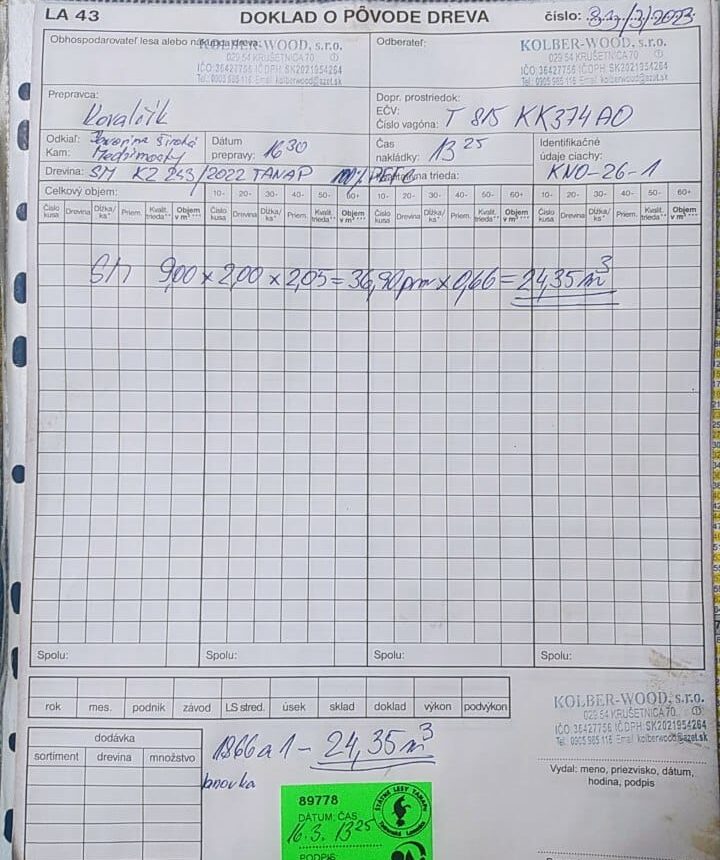 LA 43 DOKLAD O PÔVODE DREVA číslo: /3/2023
Obhospodarovateľ lesa alebo
KOLBER-WOOD, s.r.o.
029 54 KRUŠETNICA 70 ①
IČO: 36427756 IČ DPH: SK2021954264
Tel.: 0905 985 116 Email: kolberwood@azet.sk
Odberateľ:
KOLBER-WOOD, s.r.o.
029 54 KRUŠETNICA 70 ①
IČO: 36427756 IČ DPH: SK2021954264
Tel.: 0905 985 116 Email: kolberwood@azet.sk
Prepravca:
Kovalčík
Dopr. prostriedok:
EČV:
Číslo vagóna: T 815 KK374AO
Odkiaľ: Javorina Široká
Kam:
Dátum
prepravy: 16 30
Čas
nakládky: 13 25
Identifikačné
údaje ciachy:
KNO-26-1
Drevina: SM KZ 243/2022 TANAP 100% trieda:
Celkový objem: 10- 20- 30- 40- 50- 60+ 10- 20- 30- 40- 50- 60+ 10- 20- 30- 40- 50- 60+
Číslo kusa Drevina Dĺžka/ks* Priem. Kvalit. trieda** Objem v m³*** Číslo kusa Drevina Dĺžka/ks* Priem. Kvalit. trieda** Objem v m³*** Číslo kusa Drevina Dĺžka/ks* Priem. Kvalit. trieda** Objem v m³*** Číslo kusa Drevina Dĺžka/ks* Priem. Kvalit. trieda** Objem v m³***
SM 9,00 x 2,00 x 2,05 = 36,90 prm x 0,66 = 24,35 m³
Spolu: Spolu: Spolu: Spolu:
rok mes. podnik závod LS stred. úsek sklad doklad výkon podvýkon
KOLBER-WOOD, s.r.o.
029 54 KRUŠETNICA 70 ①
IČO: 36427756 IČ DPH: SK2021954264
Tel.: 0905 985 116 Email: kolberwood@azet.sk
dodávka
sortiment drevina množstvo
1866 a 1 - 24,35 m³
Vydal: meno, priezvisko, dátum,
hodina, podpis
89778
DÁTUM: ČAS
16.3. 13 25
PODPIS
ŠTÁTNE LESY TANAPu
Tatranská Lomnica